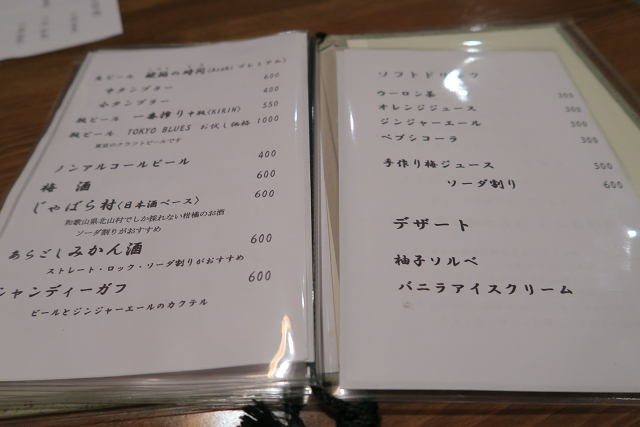 生ビール 熟撰の時間(Asahi プレミアム)
中タンブラー 600
小タンブラー 400
瓶ビール 一番搾り中瓶(KIRIN) 550
瓶ビール TOKYO BLUES お試し価格 1000
東京のクラフトビールです
ノンアルコールビール 400
梅 酒 600
じゃばら村(日本酒ベース) 600
和歌山県北山村でしか採れない柑橘のお酒
ソーダ割りがおすすめ
あらごしみかん酒 600
ストレート・ロック・ソーダ割りがおすすめ
シャンディーガフ 600
ビールとジンジャーエールのカクテル
ソフトドリンク
ウーロン茶 300
オレンジジュース 300
ジンジャーエール 300
ペプシコーラ 300
手作り梅ジュース 500
ソーダ割り 600
デザート
柚子ソルベ
バニラアイスクリーム